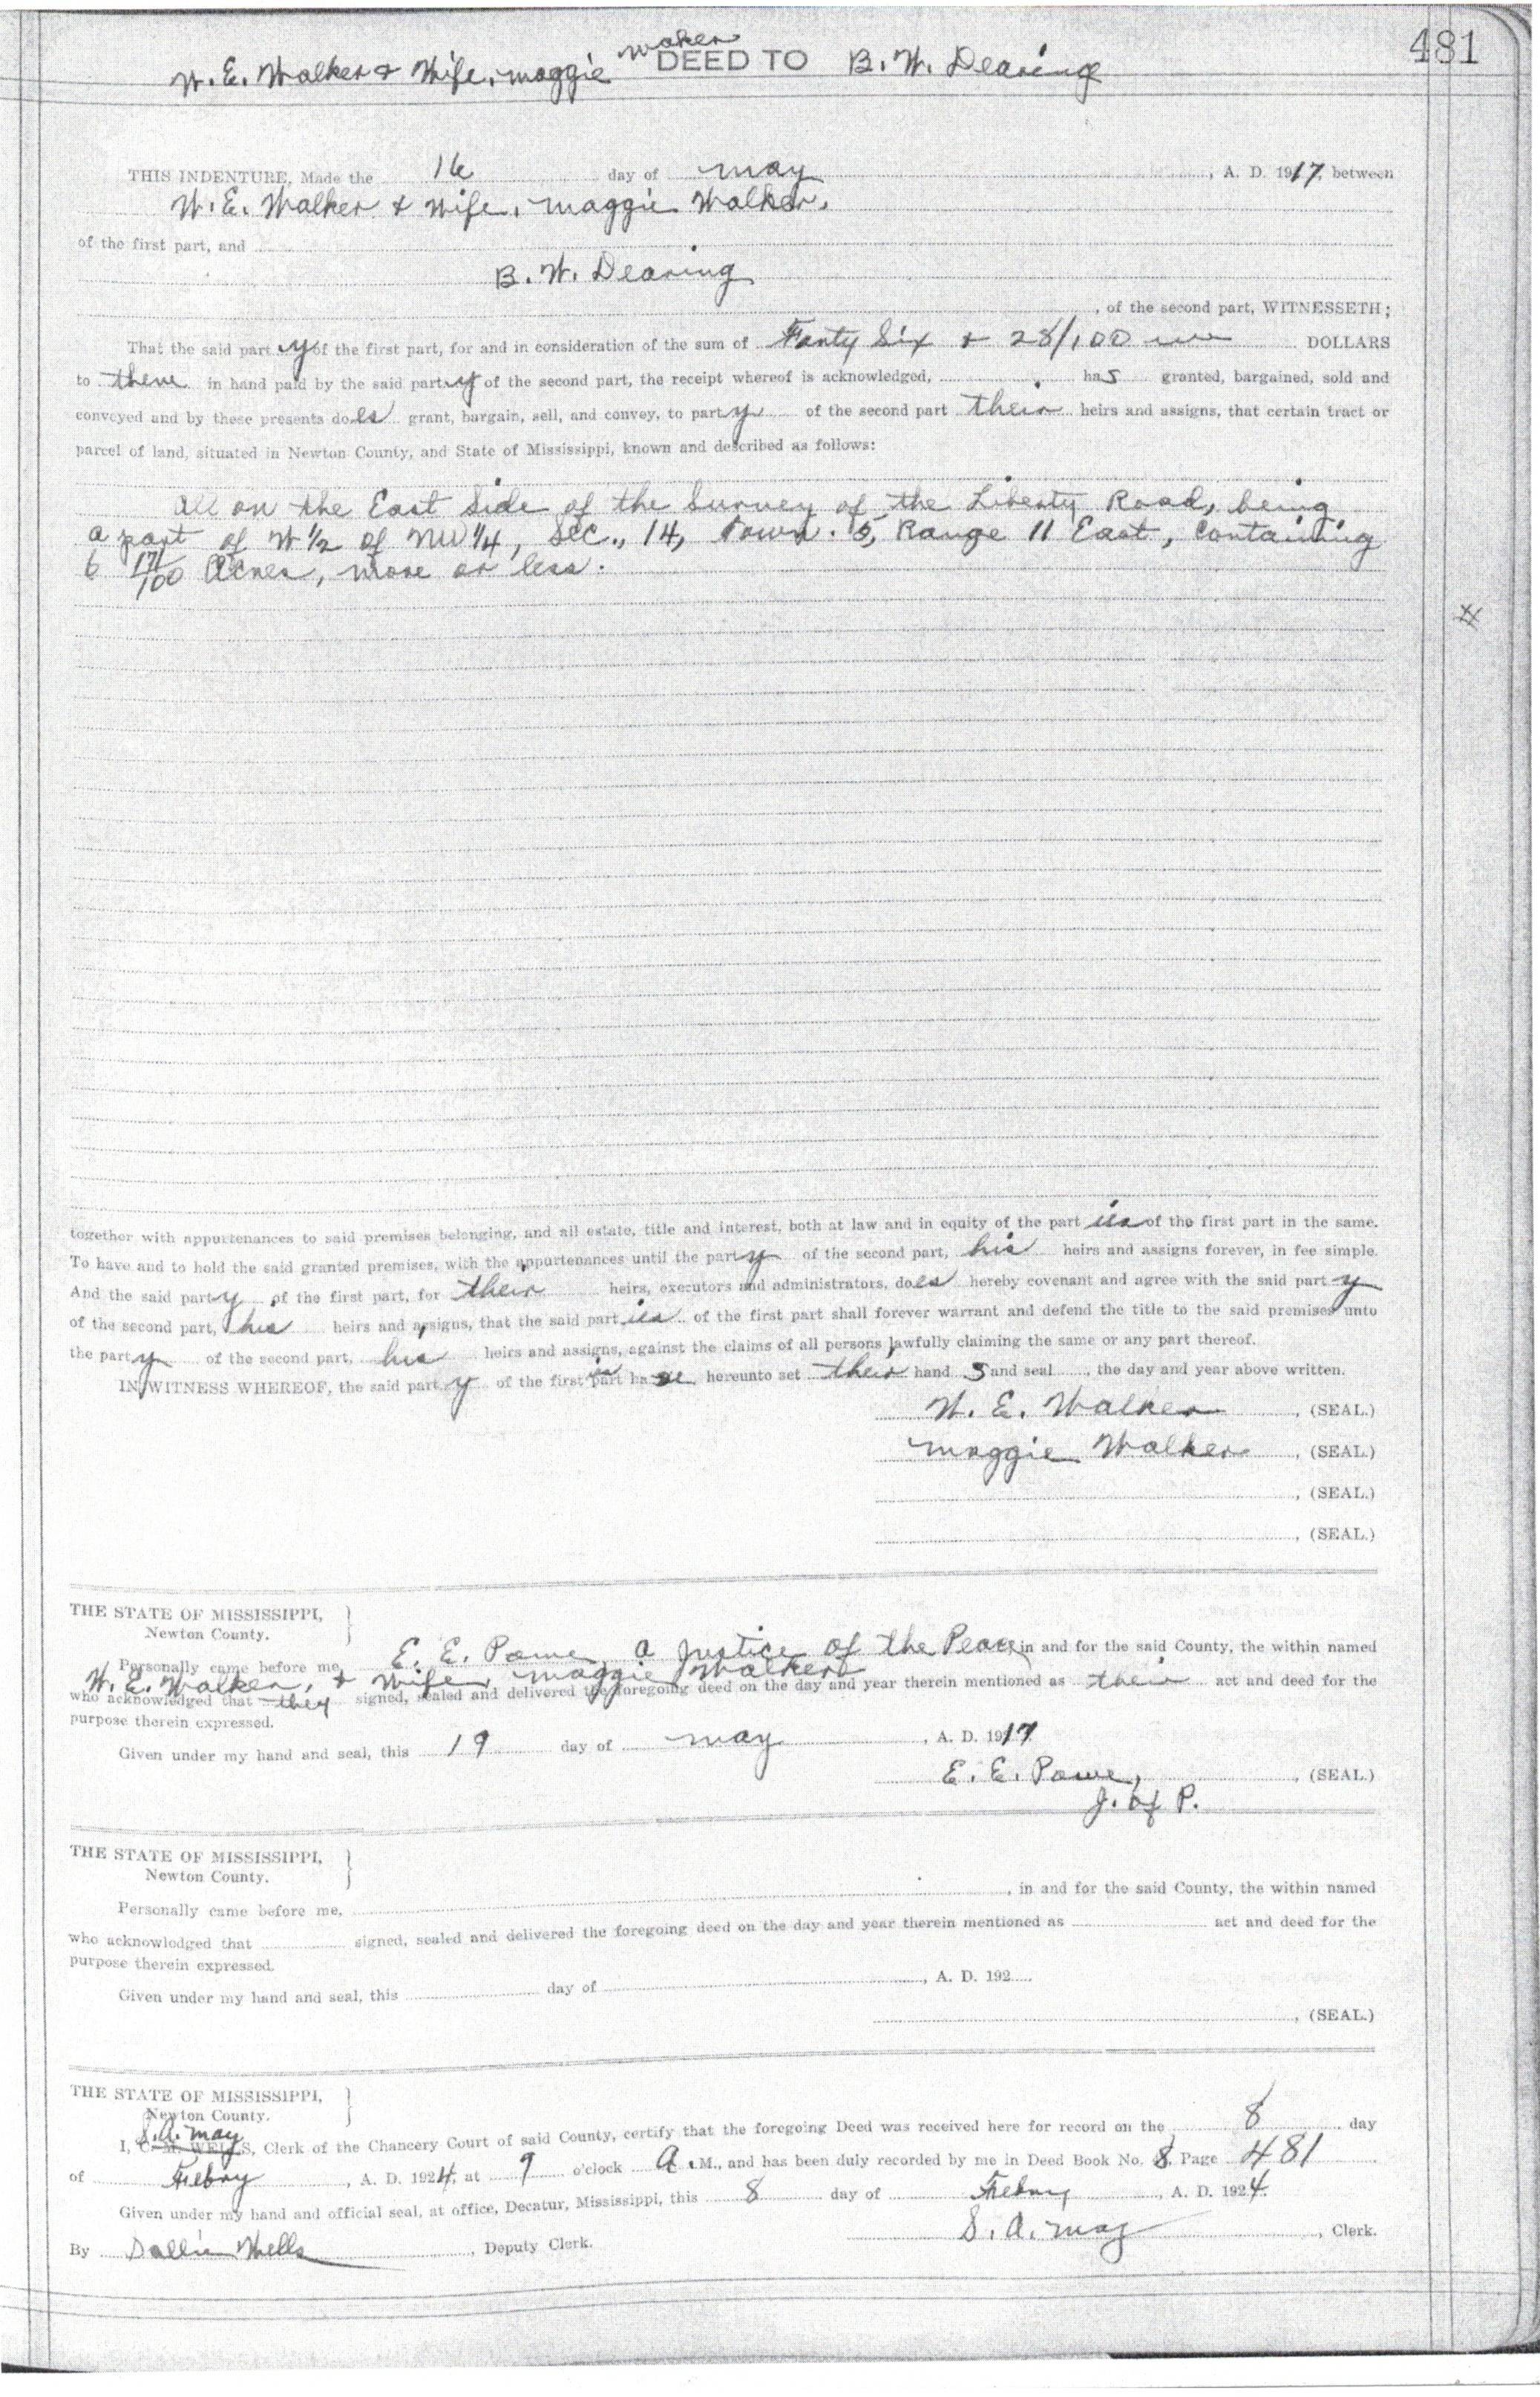 481
Walker
W. E. Walker & Wife, Maggie DEED TO B. W. Dearing
THIS INDENTURE, Made the 16 day of May, A. D. 1917, between
W. E. Walker & Wife, Maggie Walker,
of the first part, and
B. W. Dearing
, of the second part, WITNESSETH;
That the said party of the first part, for and in consideration of the sum of Forty Six & 28/100 DOLLARS
to there in hand paid by the said party of the second part, the receipt whereof is acknowledged, has granted, bargained, sold and
conveyed and by these presents does grant, bargain, sell, and convey, to party of the second part their heirs and assigns, that certain tract or
parcel of land, situated in Newton County, and State of Mississippi, known and described as follows:
All on the East Side of the Survey of the Liberty Road, being
a part of W 1/2 of NW 1/4, Sec., 14, Town. 5, Range 11 East, Containing
6 17/100 Acres, more or less.
together with appurtenances to said premises belonging, and all estate, title and interest, both at law and in equity of the part ies of the first part in the same.
To have and to hold the said granted premises, with the appurtenances until the party of the second part, his heirs and assigns forever, in fee simple.
And the said party of the first part, for their heirs, executors and administrators, does hereby covenant and agree with the said party
of the second part, his heirs and assigns, that the said part ies of the first part shall forever warrant and defend the title to the said premises unto
the party of the second part, his heirs and assigns, against the claims of all persons lawfully claiming the same or any part thereof.
IN WITNESS WHEREOF, the said party of the first part have hereunto set their hand s and seal, the day and year above written.
W. E. Walker, (SEAL.)
Maggie Walker, (SEAL.)
, (SEAL.)
, (SEAL.)
THE STATE OF MISSISSIPPI,
Newton County.
Personally came before me E. E. Powe a Justice of the Peace in and for the said County, the within named
W. E. Walker, & Wife, Maggie Walker
who acknowledged that they signed, sealed and delivered the foregoing deed on the day and year therein mentioned as their act and deed for the
purpose therein expressed.
Given under my hand and seal, this 19 day of May, A. D. 1917
E. E. Powe, (SEAL.)
J. of P.
THE STATE OF MISSISSIPPI,
Newton County.
Personally came before me, , in and for the said County, the within named
who acknowledged that signed, sealed and delivered the foregoing deed on the day and year therein mentioned as act and deed for the
purpose therein expressed.
Given under my hand and seal, this day of , A. D. 192
, (SEAL.)
THE STATE OF MISSISSIPPI,
Newton County.
S. A. May
I, C. M. WELLS, Clerk of the Chancery Court of said County, certify that the foregoing Deed was received here for record on the 8 day
of Febry, A. D. 1924, at 9 o'clock A. M., and has been duly recorded by me in Deed Book No. 8, Page 481
Given under my hand and official seal, at office, Decatur, Mississippi, this 8 day of Febry, A. D. 1924.
S. A. May, Clerk.
By Dallie Wells, Deputy Clerk.